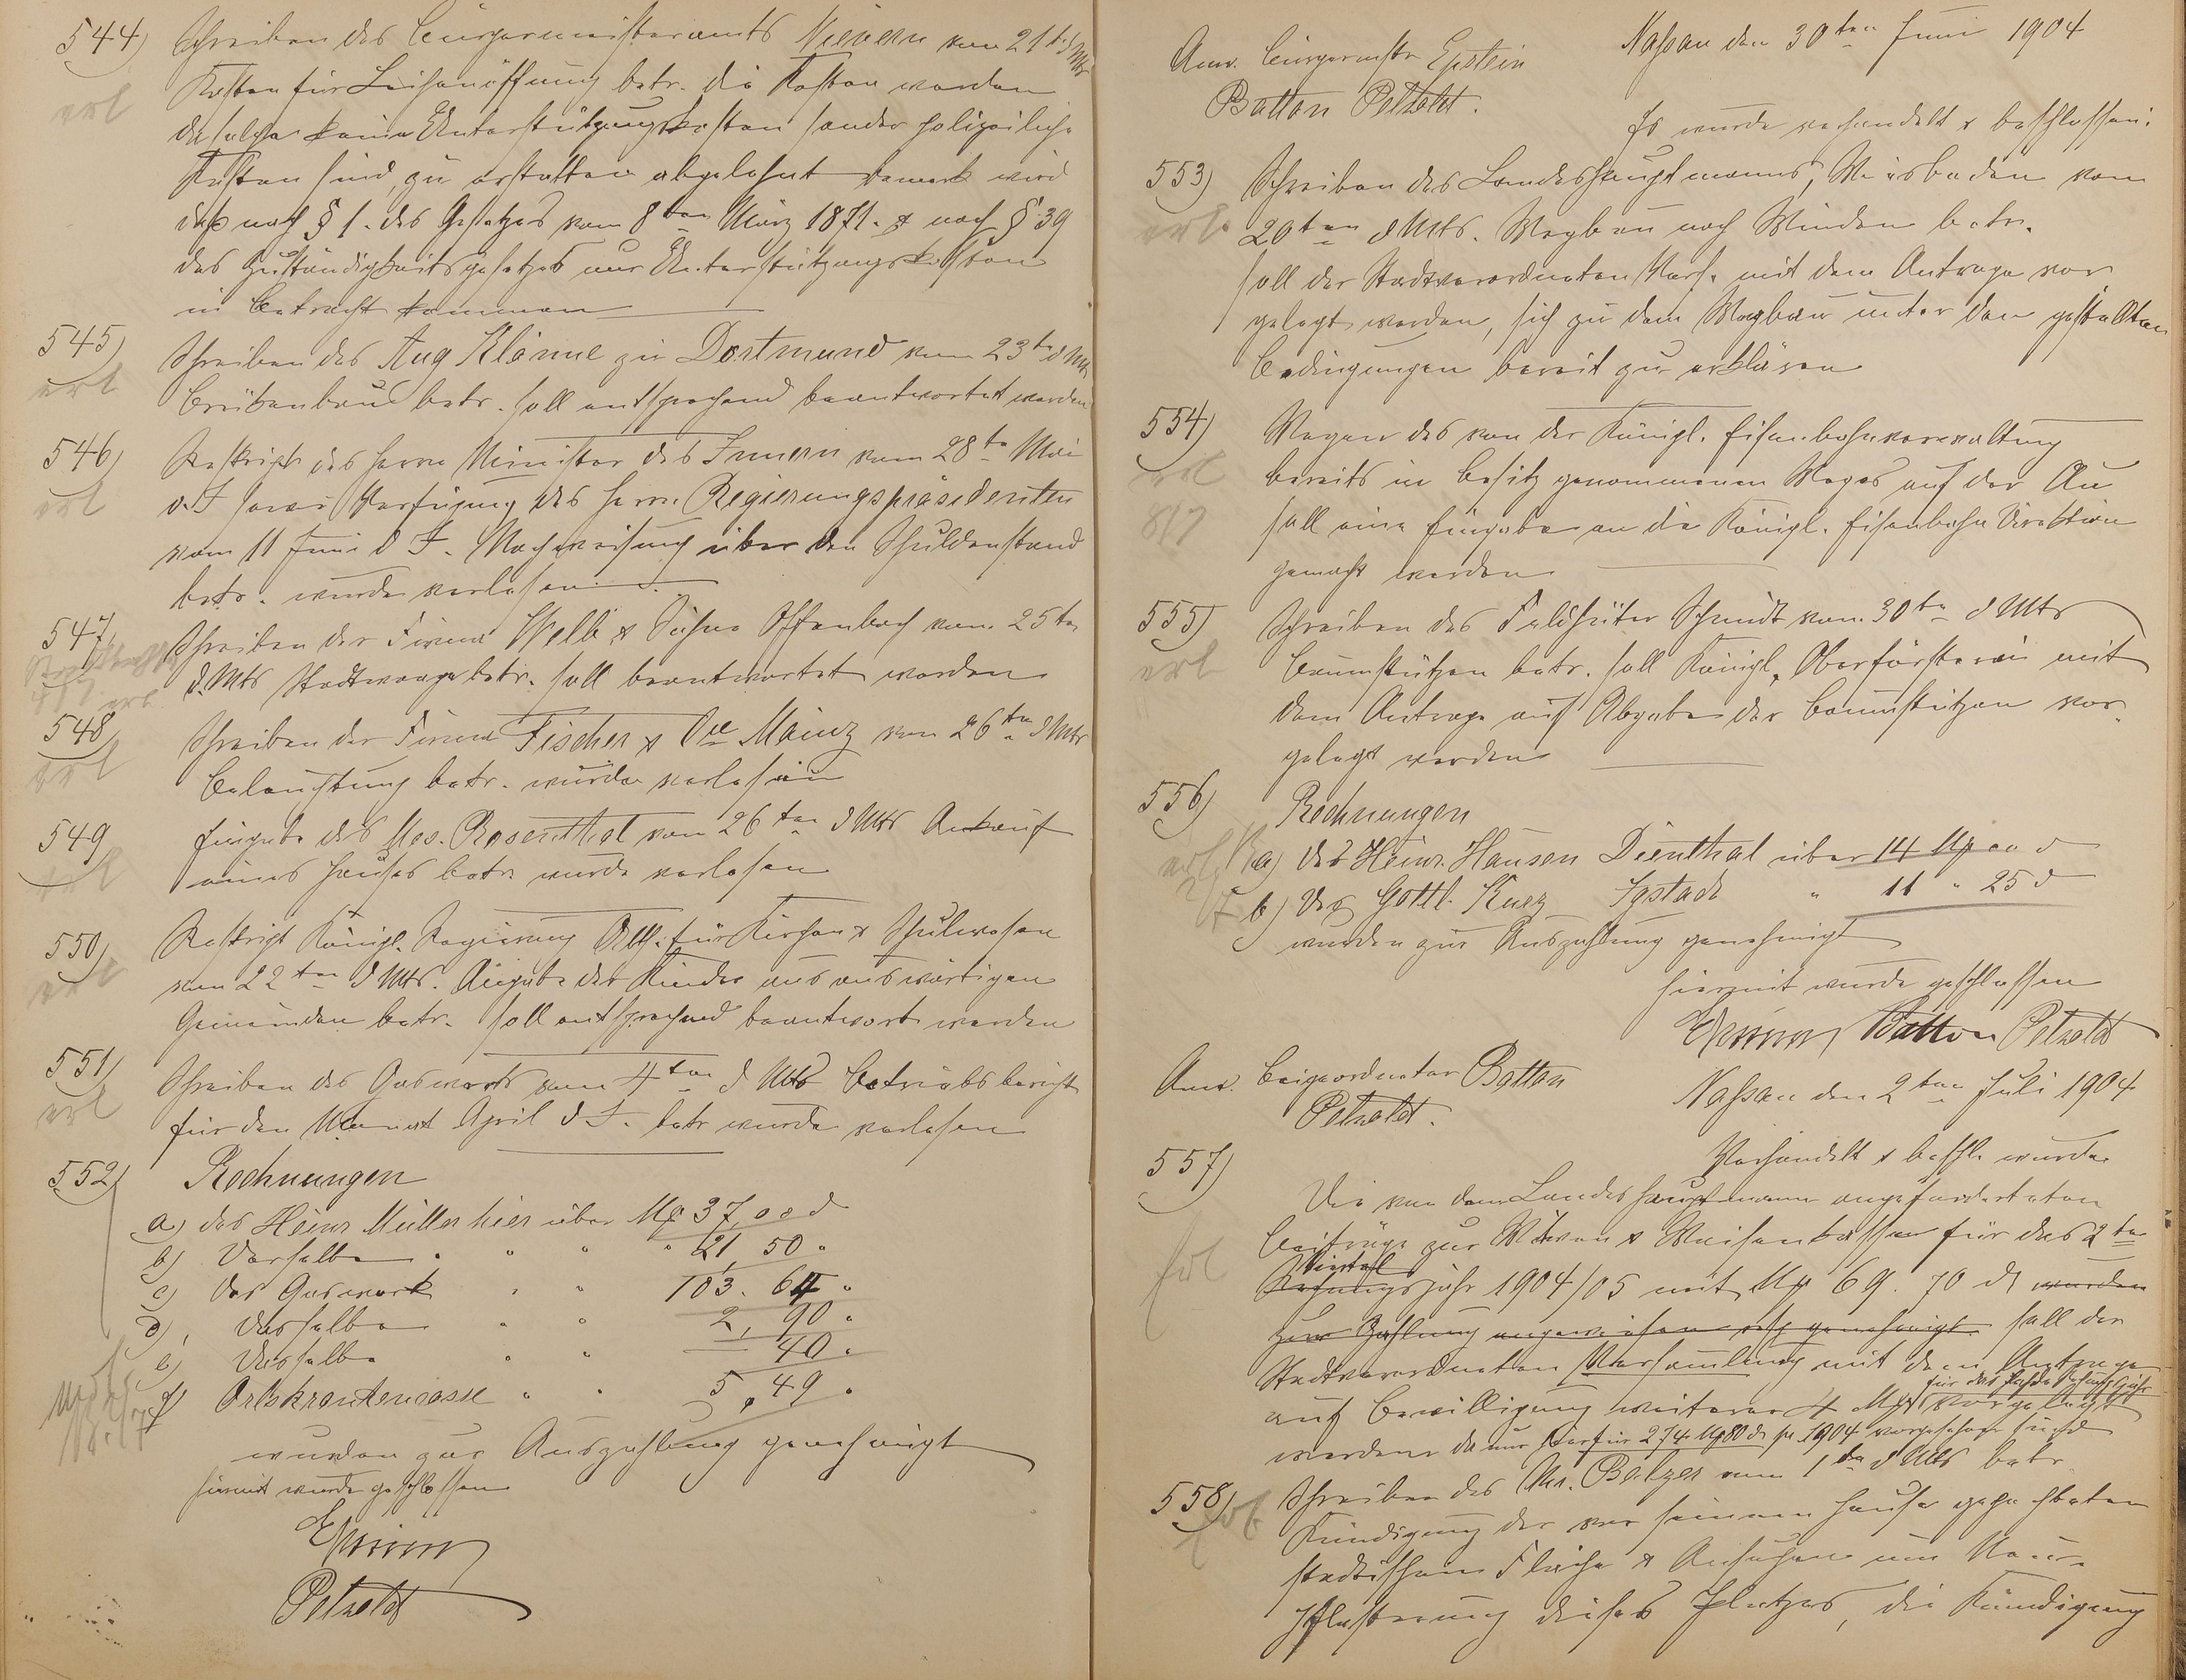 544) Schreiben des Bürgermeisteramts Nievern vom 21t d Mts
erl Kosten für Leichenöffnung betr. die Kosten werden
da solche keine Unterstützungskosten sonder polizeiliche
Kosten sind zu erstatten abgelehnt bemerkt wird
daß nach § 1. des Gesetzes vom 8ten März 1871. & nach § 39
des Zuständigkeitsgesetzes nur Unterstützungskosten
in Betracht kommen
545) Schreiben des Aug Klönne zu Dortmund vom 23t d Mts
erl Brückenbau betr. soll entsprechend beantwortet werden
546) Reskript des Herrn Minister des Innern vom 28ten Mai
erl d. J sowie Verfügung des Herrn Regierungspräsidenten
vom 11 Juni d J. Nachweisung über den Schuldenstand
betr. wurde verlesen
547) Schreiben der Firma Welb & Söhne Offenbach vom 25ten
d. Mts Stadtwaage betr. soll beantwortet werden
erl
548) Schreiben der Firma Fischer & Cie Mainz vom 26ten d Mts
erl Beleuchtung betr. wurde verlesen
549 Eingabe des Mos. Rosenthal vom 26ten d Mts Ankauf
erl eines Hauses betr. wurde verlesen
550) Reskript Königl. Regierung Abth. für Kirchen & Schulwesen
erl vom 22ten d Mts. Angabe der Kinder aus auswärtigen
Gemeinden betr. soll entsprechend beantwort werden
551) Schreiben des Gaswerks vom 4ten d Mts Betriebsbericht
erl für den Monat April d J. betr wurde verlesen
552) Rechnungen
a) des Heinr Müller hier über M 37,00 d
b) Derselbe " " " 21, 50 "
c) Das Gaswerk " " 103. 64 "
d) Dasselbe " " 2, 90 "
e) Dasselbe " " — 40 "
f) Ortskrankencasse " " 5, 49 "
wurden zur Auszahlung genehmigt
hiermit wurde geschlossen
Epstein
Petzoldt
Nassau den 30ten Juni 1904
Anw. Bürgermstr Epstein
Batton Petzoldt.
Es wurde verhandelt & beschlossen:
553) Schreiben des Landeshauptmanns, Wiesbaden vom
erl. 20ten d Mts. Wegbau nach Winden betr.
soll der Stadtverordneten Vers. mit dem Antrage vor
gelegt werden, sich zu dem Wegbau unter den gestellten
Bedingungen bereit zu erklären
554) Wegen des von der Königl. Eisenbahnverwaltung
erl bereits in Besitz genommenen Weges auf der Au
8/7 soll eine Eingabe an die Königl. Eisenbahn Direktion
gemacht werden
555) Schreiben des Feldhüter Schmidt vom 30ten d Mts
erl Baumstützen betr. soll Königl. Oberförsterei mit
dem Antrage auf Abgabe der Baumstützen vor
gelegt werden
556) Rechnungen
erl a) des Heinr. Hansen Dienthal über 14 M 00 d
b) Des Gottl. Kurz Igstadt " 11 " 25 d
wurden zur Auszahlung genehmigt
hiermit wurde geschlossen
Epstein Batton Petzoldt
Anw. Beigeordneter Batton
Petzoldt.
Nassau den 2ten Juli 1904
557) Verhandelt & beschl. wurde
Die von dem Landeshauptmann angeforderten
Beiträge zur Witwen & Waisenkasse für das 2te
erl Viertel
Rechnungsjahr 1904/05 mit M 69. 70 d wurden
zur Zahlung angewiesen genehmigt. soll der
Stadtverordneten Versammlung mit dem Antrage
für das Rechnungsjahr
auf Bewilligung weiterer 4 M vorgelegt
werden da nur hierfür 274 M 80 d pr 1904 vorgesehen sind
558) Schreiben des Balzer vom 1ten d Mts betr
erl Kündigung der vor seinem Hause gepachteten
städtischen Fläche & Ansuchen um Neu-
pflasterung dieses Platzes, die Kündigung